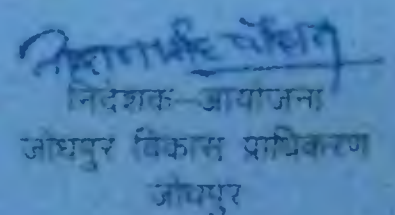 निदेशक-आयोजना
जोधपुर विकास प्राधिकरण
जोधपुर